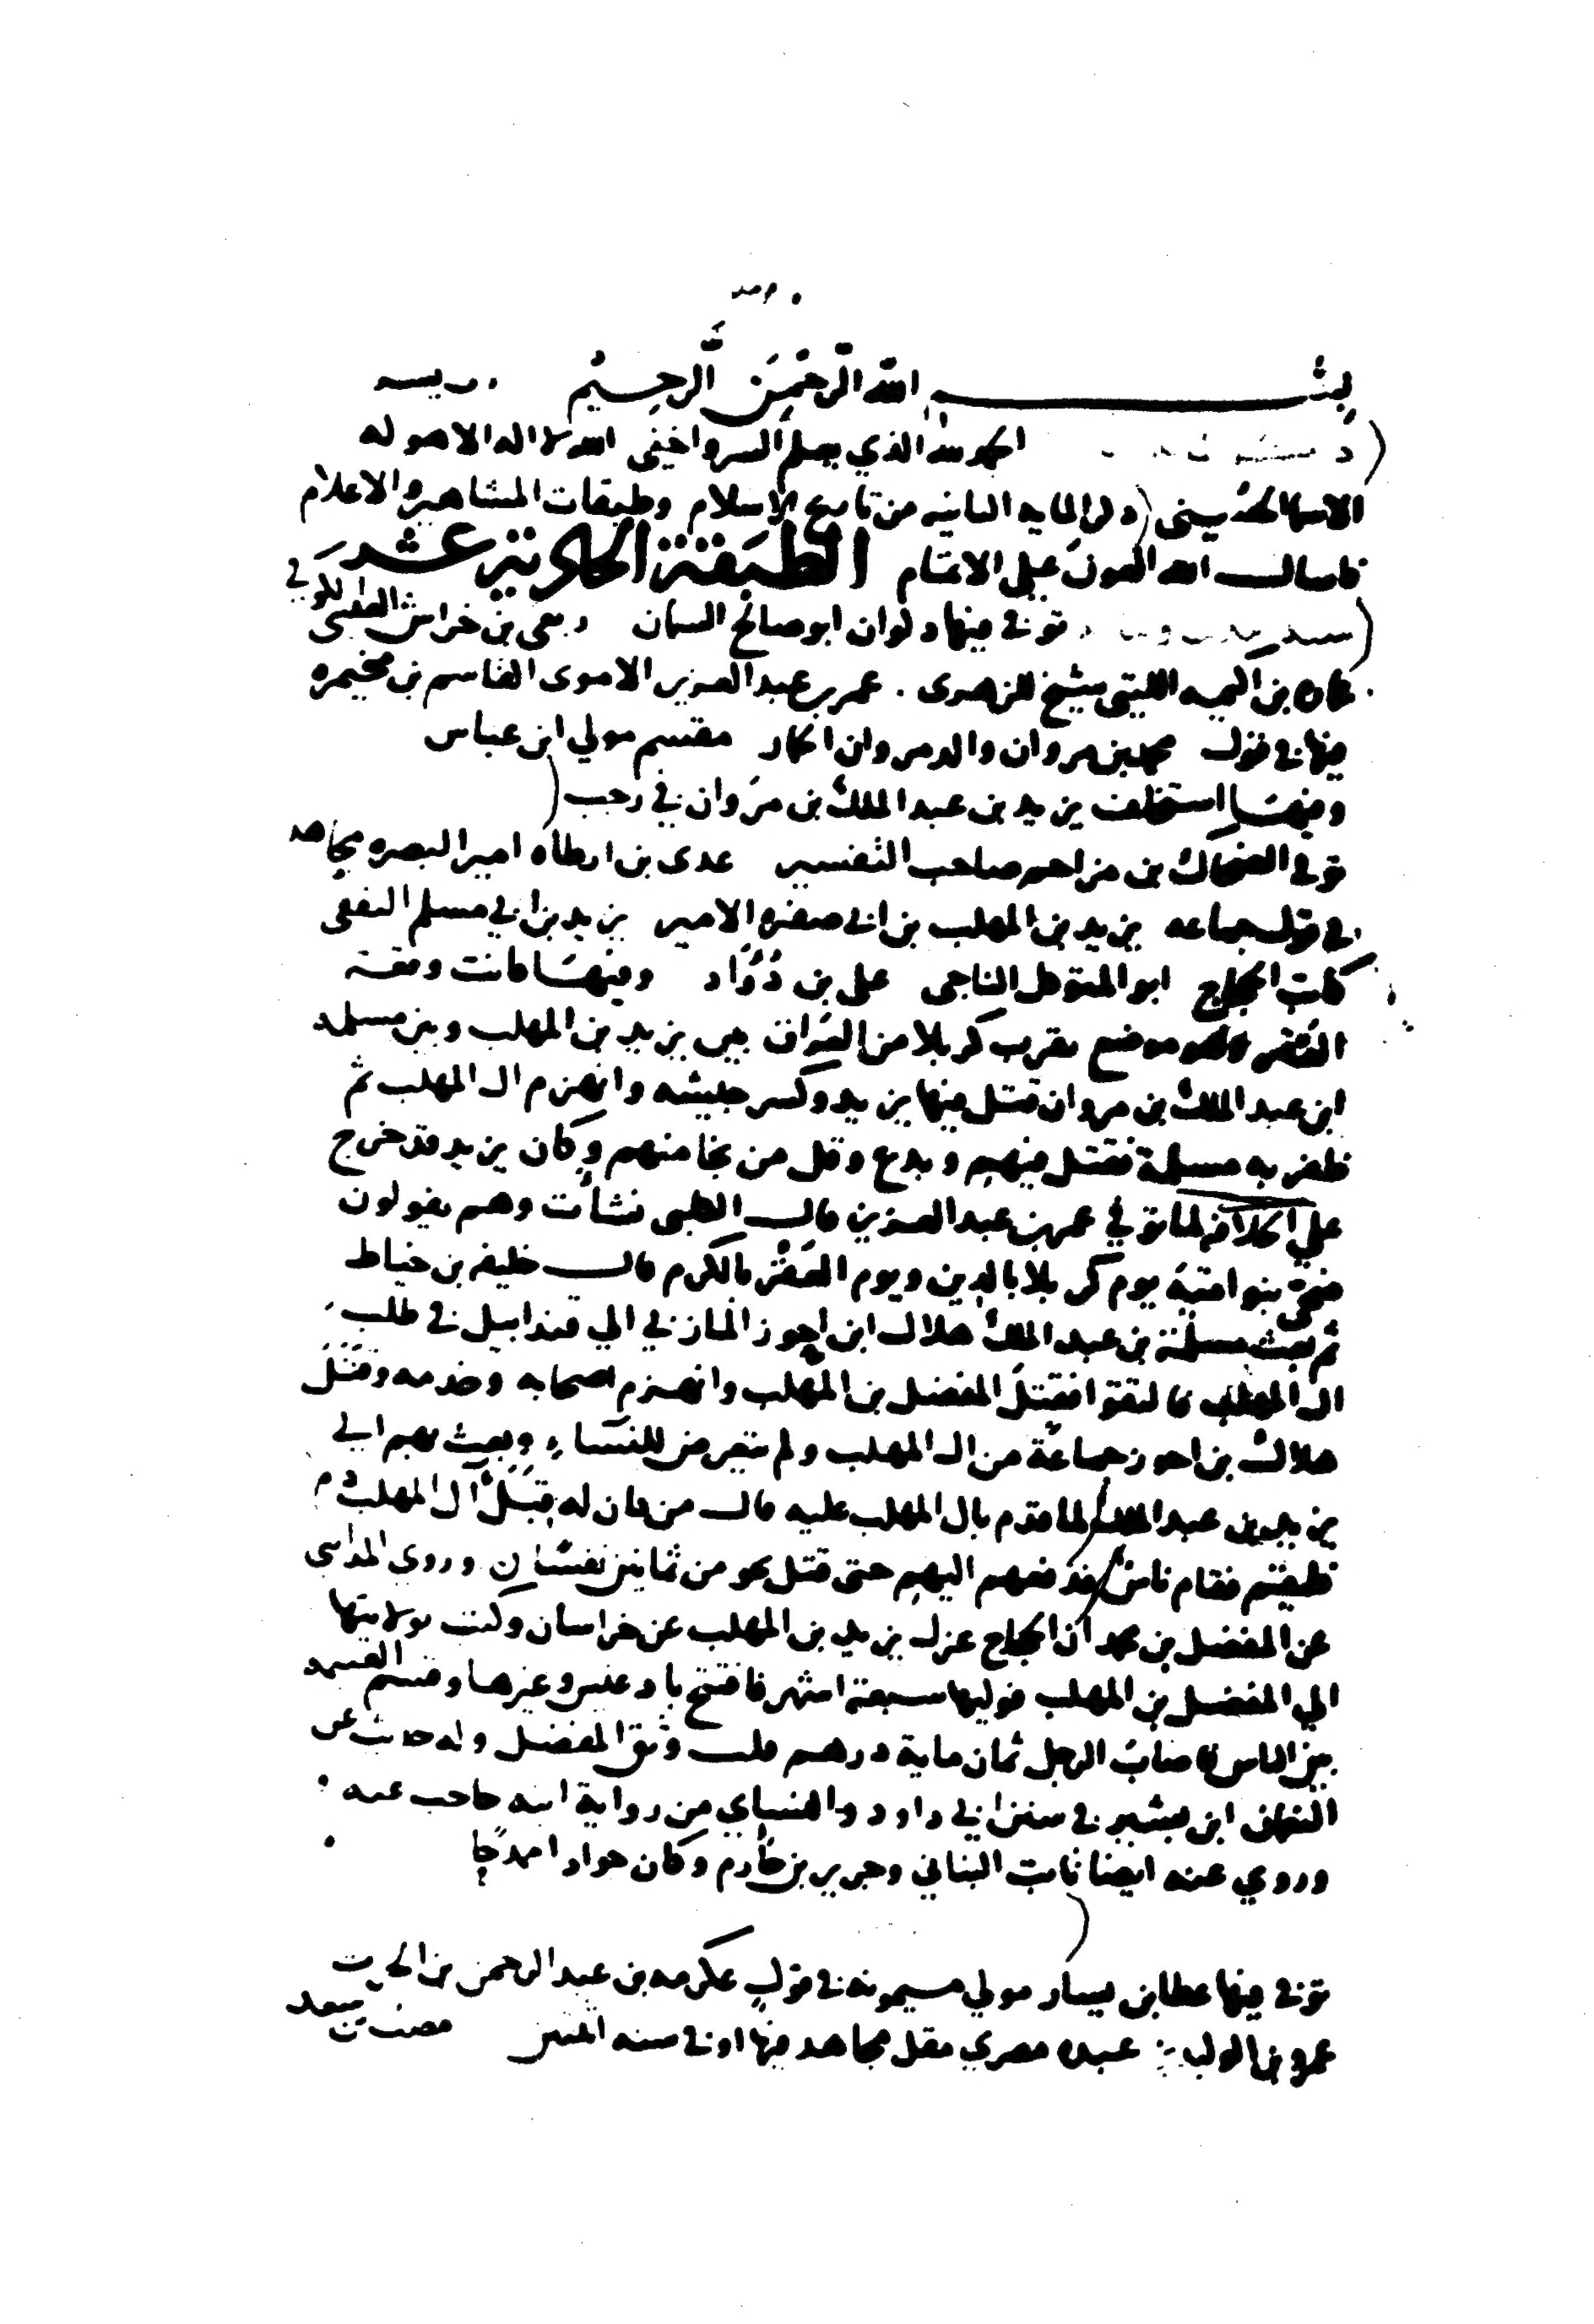 بسم الله الرحمن الرحيم
الحمد لله الذي يعلم السر واخفى الله لا اله الا هو له
الاسما الحسنى المايه الثانيه من تاريخ الاسلام وطبقات المشاهير والاعلام
فاسال الله العون على الاتمام الطبقة الحادية عشر
توفي فيها ذكوان ابو صالح السمان ربعي بن خراش الكوفي
عماره بن اكيمه الليثي شيخ للزهري . عمر بن عبد العزيز الاموى القاسم بن مخيمره
فيها في قول محمد بن مروان والد مروان الحمار مقسم مولي ابن عباس
وفيها استخلف يزيد بن عبد الملك بن مروان في رجب
توفى الضحاك بن مزاحم صاحب التفسير عدى بن ارطاه امير البصره مجاهد
في قول جماعه يزيد بن المهلب بن ابى صفره الامير يزيد بن ابي مسلم الثقفى
كاتب الحجاج ابو المتوكل الناجى على بن دُوَاد وفيها كانت وقعة
العقر وهو موضع بقرب كربلا من العراق بين يزيد بن المهلب وبين مسلمه
ابن عبد الملك بن مروان قتل فيها يزيد وكسر جيشه وانهزم ال المهلب ثم
ظفر به مسلمة فقتل فيهم وبدع وقل من نجا منهم وكان يزيد قد خرج
على الخلافه لما توفي عمر بن عبد العزيز قال الكلبى نشات وهم يقولون
ضحى بنو امية يوم كربلا بالدين ويوم العقر بالكرم قال خليفه بن خياط
ثم بعث مسلمة بن عبد الملك هلال ابن احوز المازني الي قندابيل في طلب
ال المهلب فالتقوا فقتل المفضل بن المهلب وانهزم اصحابه وخدمه وقتل
هلال بن احوز جماعة من ال المهلب ولم يتعرض للنساء وبعث بهم الي
يزيد بن عبد الملك لما قدم بال المهلب عليه قال من كان له قِبَل آل المهلب دم
فليقم فقام ناس فدفعهم اليهم حتى قتل نحو من ثمانين نفسا وروى المدايني
عن المفضل بن محمد ان الحجاج عزل يزيد بن المهلب عن خراسان وكتب بولايتها
الي المفضل بن المهلب فوليها سبعة اشهر فافتتح بادغيس وغيرها وقسم الغنيمه
بين الناس فاصاب الرجل ثمان ماية درهم قلت وثق المفضل وله حديث عن
النعمان ابن بشير في سنن ابي داود والنساي من رواية ابنه حاجب عنه
وروي عنه ايضا ثابت البناني وجرير بن حازم وكان جوادا ممدحا
توفى فيها عطا بن يسار مولي ميمونه في قول عكرمه بن عبد الرحمن بن الحرث
عبده مصري مقل مجاهد فيها او في سنه اثنتين مصعب بن سعد